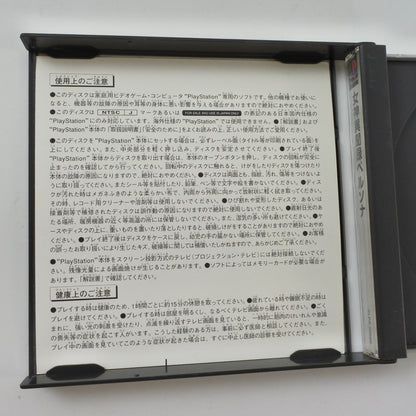 使用上のご注意
●このディスクは家庭用ビデオゲーム・コンピュータ"PlayStation"専用のソフトです。他の機種でお使いに
なると、機器等の故障の原因や耳等の身体に悪い影響を与える場合がありますので絶対におやめください。
●このディスクは NTSC J マークあるいは FOR SALE AND USE IN JAPAN ONLY の表記のある日本国内仕様の
"PlayStation"にのみ対応しています。海外仕様の"PlayStation"では使用できません。●「解説書」および
"PlayStation"本体の「取扱説明書」「安全のために」をよくお読みの上、正しい使用方法でご愛用ください。
●ディスクを"PlayStation"本体にセットする場合は、必ずレーベル面(タイトル等が印刷されている面)が
上になるようにし、また、中央部分を軽く押し込み、ディスクを安定させてください。●プレイ終了後
"PlayStation"本体からディスクを取り出す場合は、本体のオープンボタンを押し、ディスクの回転が完全に止
まったのを確認してから行ってください。回転中のディスクに触れると、けがをしたりディスクを傷つけたり
本体の故障の原因になりますので、絶対におやめください。●ディスクは両面とも、指紋、汚れ、傷等をつけない
ように取り扱ってください。またシール等を貼付したり、鉛筆、ペン等で文字や絵を書かないでください。●ディス
クが汚れた時はメガネふきのような柔らかい布で、内側から外側に向かって放射状に軽く拭き取ってください。
その時、レコード用クリーナーや溶剤等は使用しないでください。●ひび割れや変形したディスク、あるいは
接着剤等で補修されたディスクは誤作動の原因になりますので絶対に使用しないでください。●直射日光のあ
たる場所、暖房機器の近く等高温の所には保管しないでください。また、湿気の多い所も避けてください。●ケ
ースやディスクの上に、重いものを置いたり落としたりすると、破損しけがをすることがありますのでおやめくだ
さい。●プレイ終了後はディスクをケースに戻し、幼児の手の届かない場所に保管してください。●お客様
の誤ったお取り扱いにより生じたキズ、破損等に関しては補償いたしかねますので、あらかじめご了承ください。
●"PlayStation"本体をスクリーン投影方式のテレビ(プロジェクション・テレビ)には絶対接続しないでくだ
さい。残像光量による画面焼けが生じることがあります。●ソフトによってはメモリーカードが必要な場合が
あります。「解説書」で確認してください。
健康上のご注意
●プレイする時は健康のため、1時間ごとに約15分の休憩を取ってください。●疲れている時や睡眠不足の時は
プレイを避けてください。●プレイする時は部屋を明るくし、なるべくテレビ画面から離れてください。●ごく
まれに、強い光の刺激を受けたり、点滅を繰り返すテレビ画面を見ていると、一時的に筋肉のけいれんや意識
の喪失等の症状を起こす人がいます。こうした経験のある方は、事前に必ず医師と相談してください。また、
プレイ中の画面を見ていてこのような症状が起きた場合は、すぐに中止し医師の診察を受けてください。
女神異聞録ペルソナ